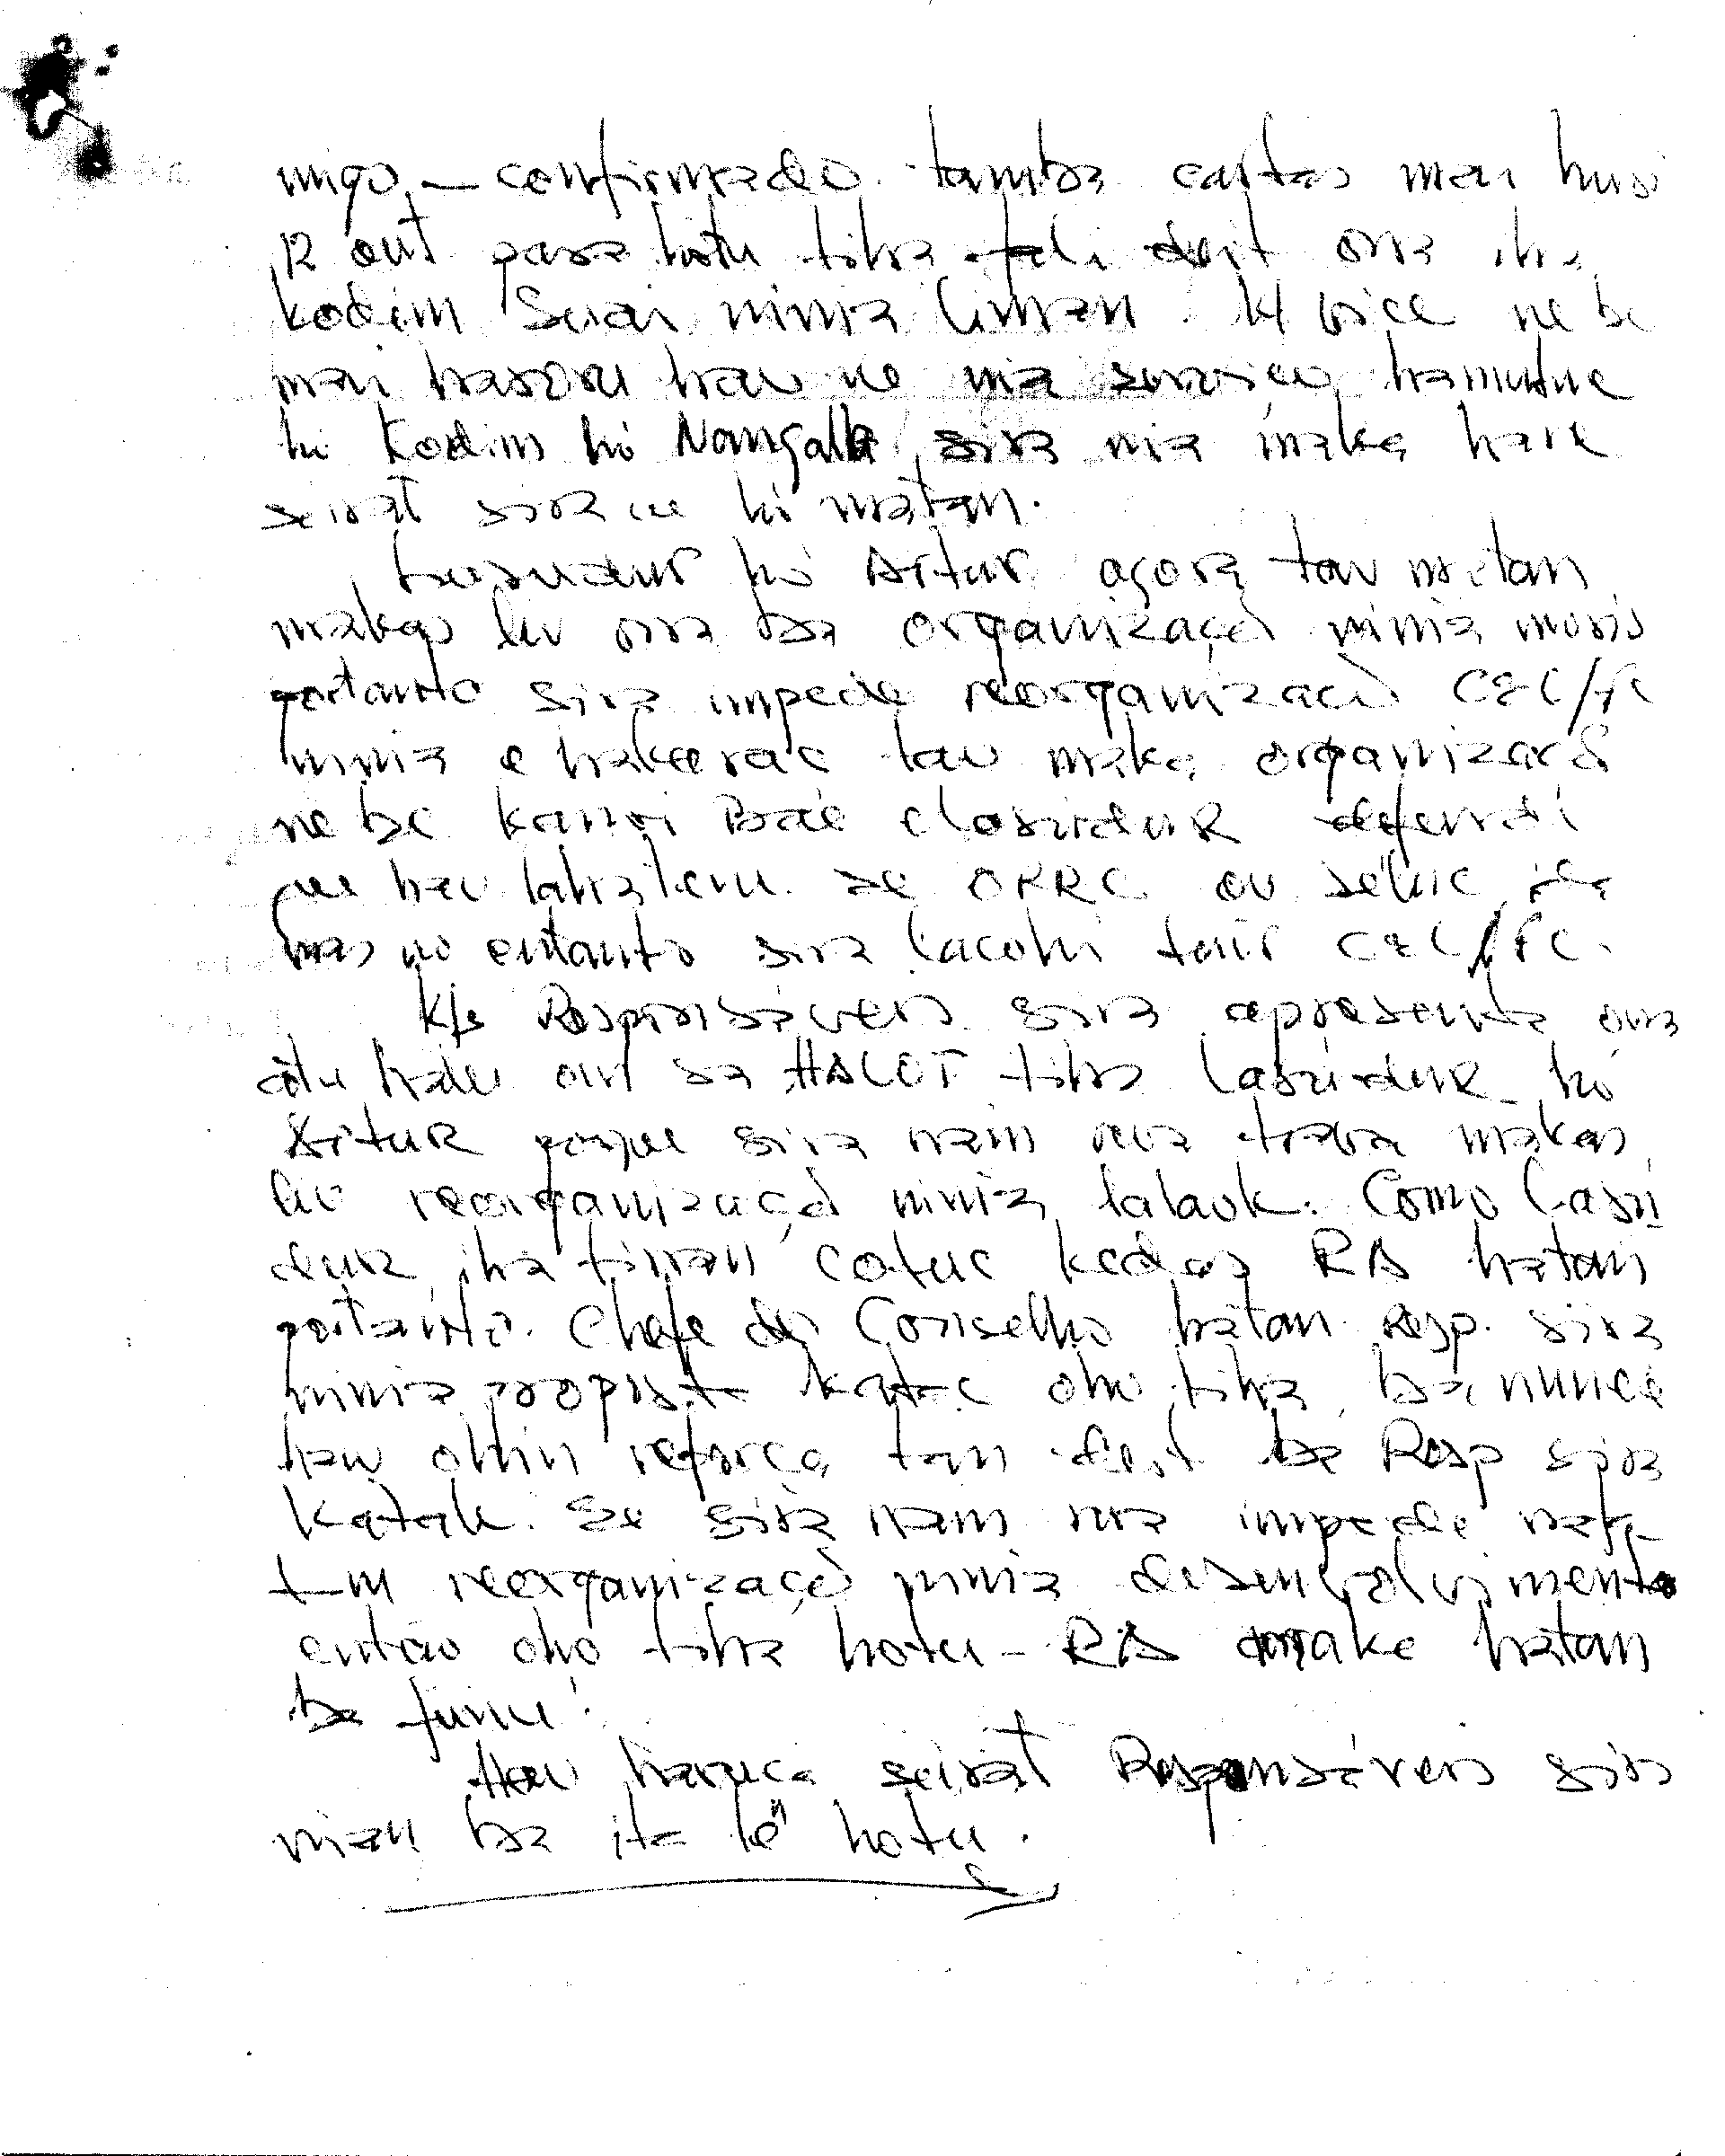 migo. — confirmado tamba cartas mai husi
12 out para hotu tiha deit ona iha
Kodim Suai ninia liman. 14 vice nebe
mai hasoru hau ne nia hamutuc
hi Kodim hi Nangala, sira nia maka hare
surat sira ne hi matan.
hi Artur agora tau matan
makas liu ona ba organização ninia moris
portanto sira impede reorganização CEC/FC
ninia e hakarac tau maka organização
nebe kanoi Bae defendi
hau lahatene se ORRC ou seluc ida
mas no entanto sira lacohi tuir CEC/FC.
K/s Responsáveis sira apresenta ona
atu halu oin sa HALOT tiha Lasudur hi
Artur porque sira nam rua trava makas
liu reorganização ninia lalaok. Como Lasu
dur iha tinan cotuc kedas RA hatan
portanto Chefe do Conselho hatan Resp. sira
ninia proposta katac oho tiha, ba nunca
hau ohin reforça tan deit ba Resp sira
Katak. Se sira nam rua impede nafa-
tin reorganização ninia desenvolvimento
então oho tiha hotu - RA maka hatan
ba funu.
Hau haruca surat Responsáveis sira
nian ba ita le hotu.